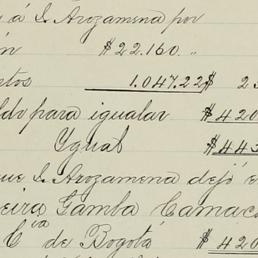 á S. Arozamena por
ón $22.160. "
tos 1.047.22 $ 2
ldo para igualar $420
Ygual $443
ue S. Arozamena dejó e
eira Gamba Camac
Cía de Bogotá $420